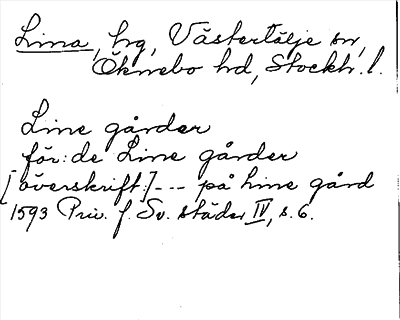 Lina, hg, Västertälje sn,
Öknebo hd, Stockh. l.
Line gårder
för: de Line gårder
[överskrift:] --- på Line gård
1593 Priv. f. Sv. städer IV, s. 6.